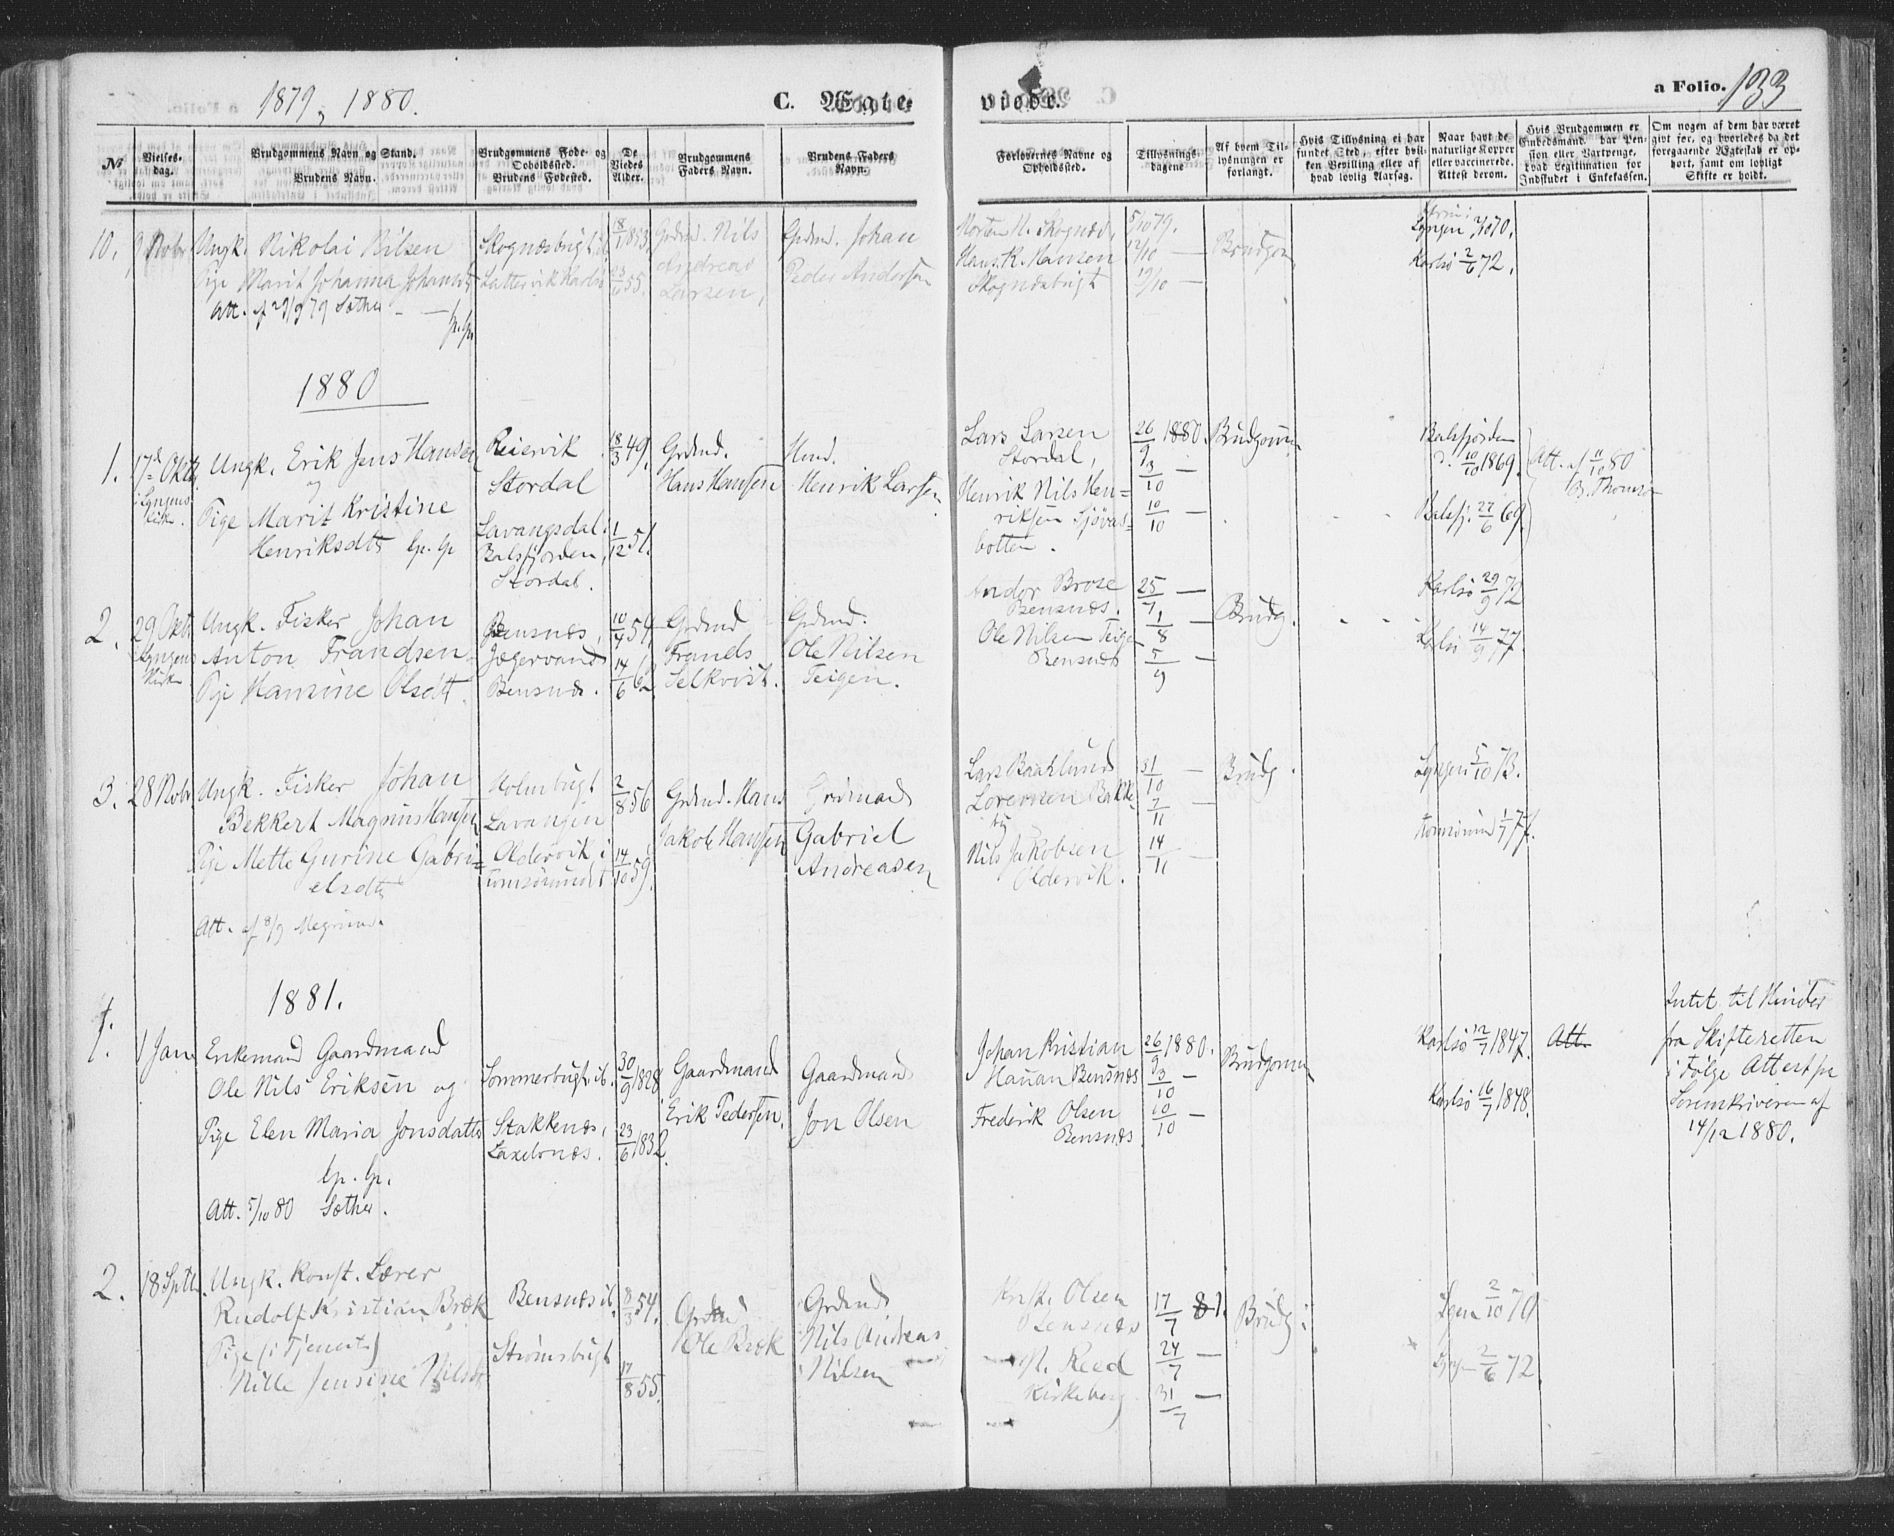 1879, 1880.
C. Ægte-
viede.
a Folio. 133
№
Vielses-
dag.
Brudgommens Navn og Stand.
Brudens Navn.
Brudgommens Føde- og
Opholdssted.
Brudens Fødested.
De
Viedes
Alder.
Brudgommens
Faders Navn.
Brudens Faders
Navn.
Forlovernes Navne og
Opholdssted.
Tillysnings-
dagene
Af hvem Til-
lysningen er
forlangt.
Hvis Tillysning ei har
fundet Sted, efter hvil-
ken Bevilling eller af
hvad lovlig Aarsag.
Naar havt de
naturlige Kopper
eller vaccinerede.
Attest derom.
Hvis Brudgommen er
Embedsmand. har Pen-
sion eller Vartpenge,
hvad Legitimation for
Indskudet i Enkekassen.
Om nogen af dem har været
gift før, og hvorledes da det
foregaaende Ægteskab er op-
hørt, samt om lovligt
Skifte er holdt.
10. 9 Novbr Ungk. Nikolai Nilsen
Pige Marit Johanna Johansdt
Att. af 29/9 79 Sæther
Skognæsbugt
Lattervik Karlsø
18/1 1853.
23/ 55.
Grdmd. Nils
Andreas
Larsen,
Grdmd. Johan
Peder Andersen
Morten H. Skognæs,
Hans R. Hansen
Skognæsbugt
5/10 79.
12/10 —
19/10 —
Brudgom
Lyngen 2/10 70.
Karlsø 2/6 72.
1880
1. 17de Oktr
i Lyngens
Kirke.
Ungk. Erik Jens Hansen
og
Pige Marit Kristine
Henriksdtr
Reiervik
Stordal
Lavangsdal i
Balsfjorden,
Stordal.
18/3 49.
1/12 51.
Grdmd.
Hans Hansen
Hmd.
Henrik Larsen
Lars Larsen
Stordal,
Henrik Nils Hen-
riksen Sjøvas-
botten.
26/9 1880.
3/10 —
10/10 —
Brudgom
Balsfjorden
d. 10/10 1869.
Balsfj. 27/6 69.
Att. af 11/10 80
B. Thomsø
2. 29 Oktr
Lyngens
Kirke
Ungk. Fisker Johan
Anton Frandsen
Pige Hansine Olsdt.
Bensnæs,
Jægervand
Bensnæs.
10/4 54.
14/6 62.
Grdmd
Frands
Selkvist.
Grdmd.
Ole Nilsen
Teigen.
Andor Brose
Bensnæs.
Ole Nilsen Teigen
Bensnæs
25/7 —
1/8 —
5/9 —
Brudg.
Karlsø 29/9 72
Karlsø 14/9 77
3. 28 Novbr Ungk. Fisker Johan
Bekkert Magnus Hansen
Pige Mette Gurine Gabri-
elsdtr
Att. af 8/9
Holmbugt
Lavangen
Oldervik i
Tomsøsundet
2/8 56
14/10 59.
Grdmd. Hans
Jakob Hansen
Grdmand
Gabriel
Andreasen
Lars Baaklund
Lorentsen Bakke-
by
Nils Jakobsen
Oldervik.
31/10 —
7/11 —
14/11 —
Brudg.
Lyngen 5/10 73.
Tromsøsund 1/7 77.
1881.
1. 1 Jan. Enkemand Gaardmand
Ole Nils Eriksen og
Pige Elen Maria Jonsdatter
Att. 5/10 80 Sæther.
Sommerbugt ib.
Stakkenæs,
Laxelvnæs.
30/9 1828
23/6 1832.
Gaardmand
Erik Pedersen.
Gaardmand
Jon Olsen
Johan Kristian
Hauan Bensnæs
Frederik Olsen
Bensnæs
26/9 1880.
3/10 —
10/10 —
Brudgommen
Karlsø 12/7 1847.
Karlsø 16/7 1848.
Att.
Intet til Hinder
fra Skifteretten
i Følge Attest fra
Sorenskriveren af
14/12 1880.
2. 18 Septbr. Ungk. Konst. Lærer
Rudolf Kristian Bræk
Pige (i Tjeneste)
Nille Jensine Nilsdt
Bensnæs ib.
Strømsbugt
8/3 54.
17/8 55.
Grdmd
Ole Bræk
Grdmd
Nils Andreas
Nilsen
Krist. Olsen
Bensnæs
Reed
Kirkeberg
17/7 81.
24/7 —
31/7 —
Brudg:
Lgen 2/10 70
Lyngen 2/6 72